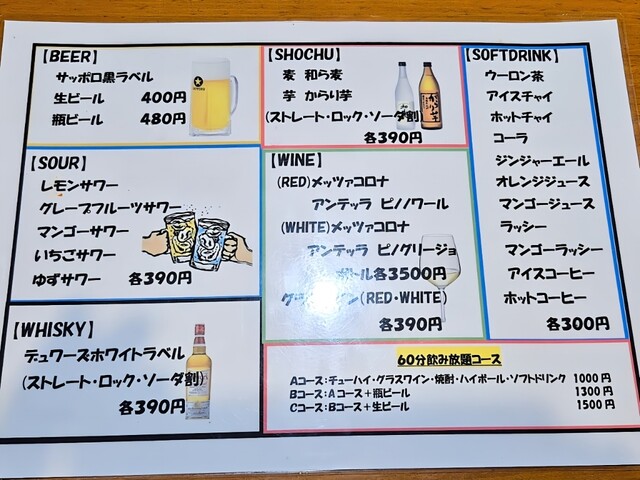 【BEER】
サッポロ黒ラベル
生ビール 400円
瓶ビール 480円
【SOUR】
レモンサワー
グレープフルーツサワー
マンゴーサワー
いちごサワー
ゆずサワー 各390円
【WHISKY】
デュワーズホワイトラベル
(ストレート・ロック・ソーダ割)
各390円
【SHOCHU】
麦 和ら麦
芋 からり芋
(ストレート・ロック・ソーダ割)
各390円
【WINE】
(RED)メッツァコロナ
アンテッラ ピノノワール
(WHITE)メッツァコロナ
アンテッラ ピノグリージョ
ボトル各3500円
(RED・WHITE)
各390円
【SOFTDRINK】
ウーロン茶
アイスチャイ
ホットチャイ
コーラ
ジンジャーエール
オレンジジュース
マンゴージュース
ラッシー
マンゴーラッシー
アイスコーヒー
ホットコーヒー
各300円
60分飲み放題コース
Aコース:チューハイ・グラスワイン・焼酎・ハイボール・ソフトドリンク 1000円
Bコース:Aコース+瓶ビール 1300円
Cコース:Bコース+生ビール 1500円